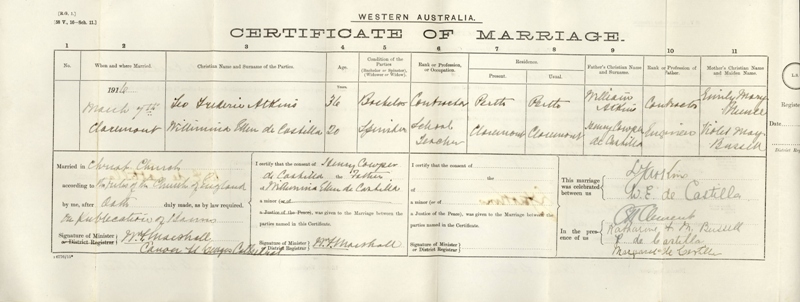 [R.G. 1.]
WESTERN AUSTRALIA.
CERTIFICATE OF MARRIAGE.
1 2 3 4 5 6 7 8 9 10 11
No. When and where Married. Christian Name and Surname of the Parties. Age. Condition of the Parties (Bachelor or Spinster), (Widower or Widow). Rank or Profession, or Occupation. Residence. Present. Usual. Father's Christian Name and Surname. Rank or Profession of Father. Mother's Christian Name and Maiden Name.
Years
1916
March 7th Leo Frederic Atkins 36 Bachelor Contractor Perth Perth William Atkins Contractor Emily Mary
Claremont Willimina Ellen de Castilla 20 Spinster School Teacher Claremont Claremont Henry Cowper de Castilla Engineer Violet May Bussell
Married in Christ Church
according to Rites of the Church of England
by me, after Oath duly made, as by law required.
on publication of Banns
Signature of Minister W.F. Marshall
or District Registrar Canon St Georges Cathedral
I certify that the consent of Henry Cowper
de Castilla a Father
a Willimina Ellen de Castilla
a minor (or of
a Justice of the Peace), was given to the Marriage between the
parties named in this Certificate.
Signature of Minister W.F. Marshall
or District Registrar
I certify that the consent of
the
of
a minor (or of
a Justice of the Peace), was given to the Marriage between the
parties named in this Certificate.
Signature of Minister
or District Registrar
This marriage was celebrated between us
W.E. de Castilla
In the presence of us
Katharine M. Bussell
de Castilla
Margaret de Castilla
Register
Date
District Reg